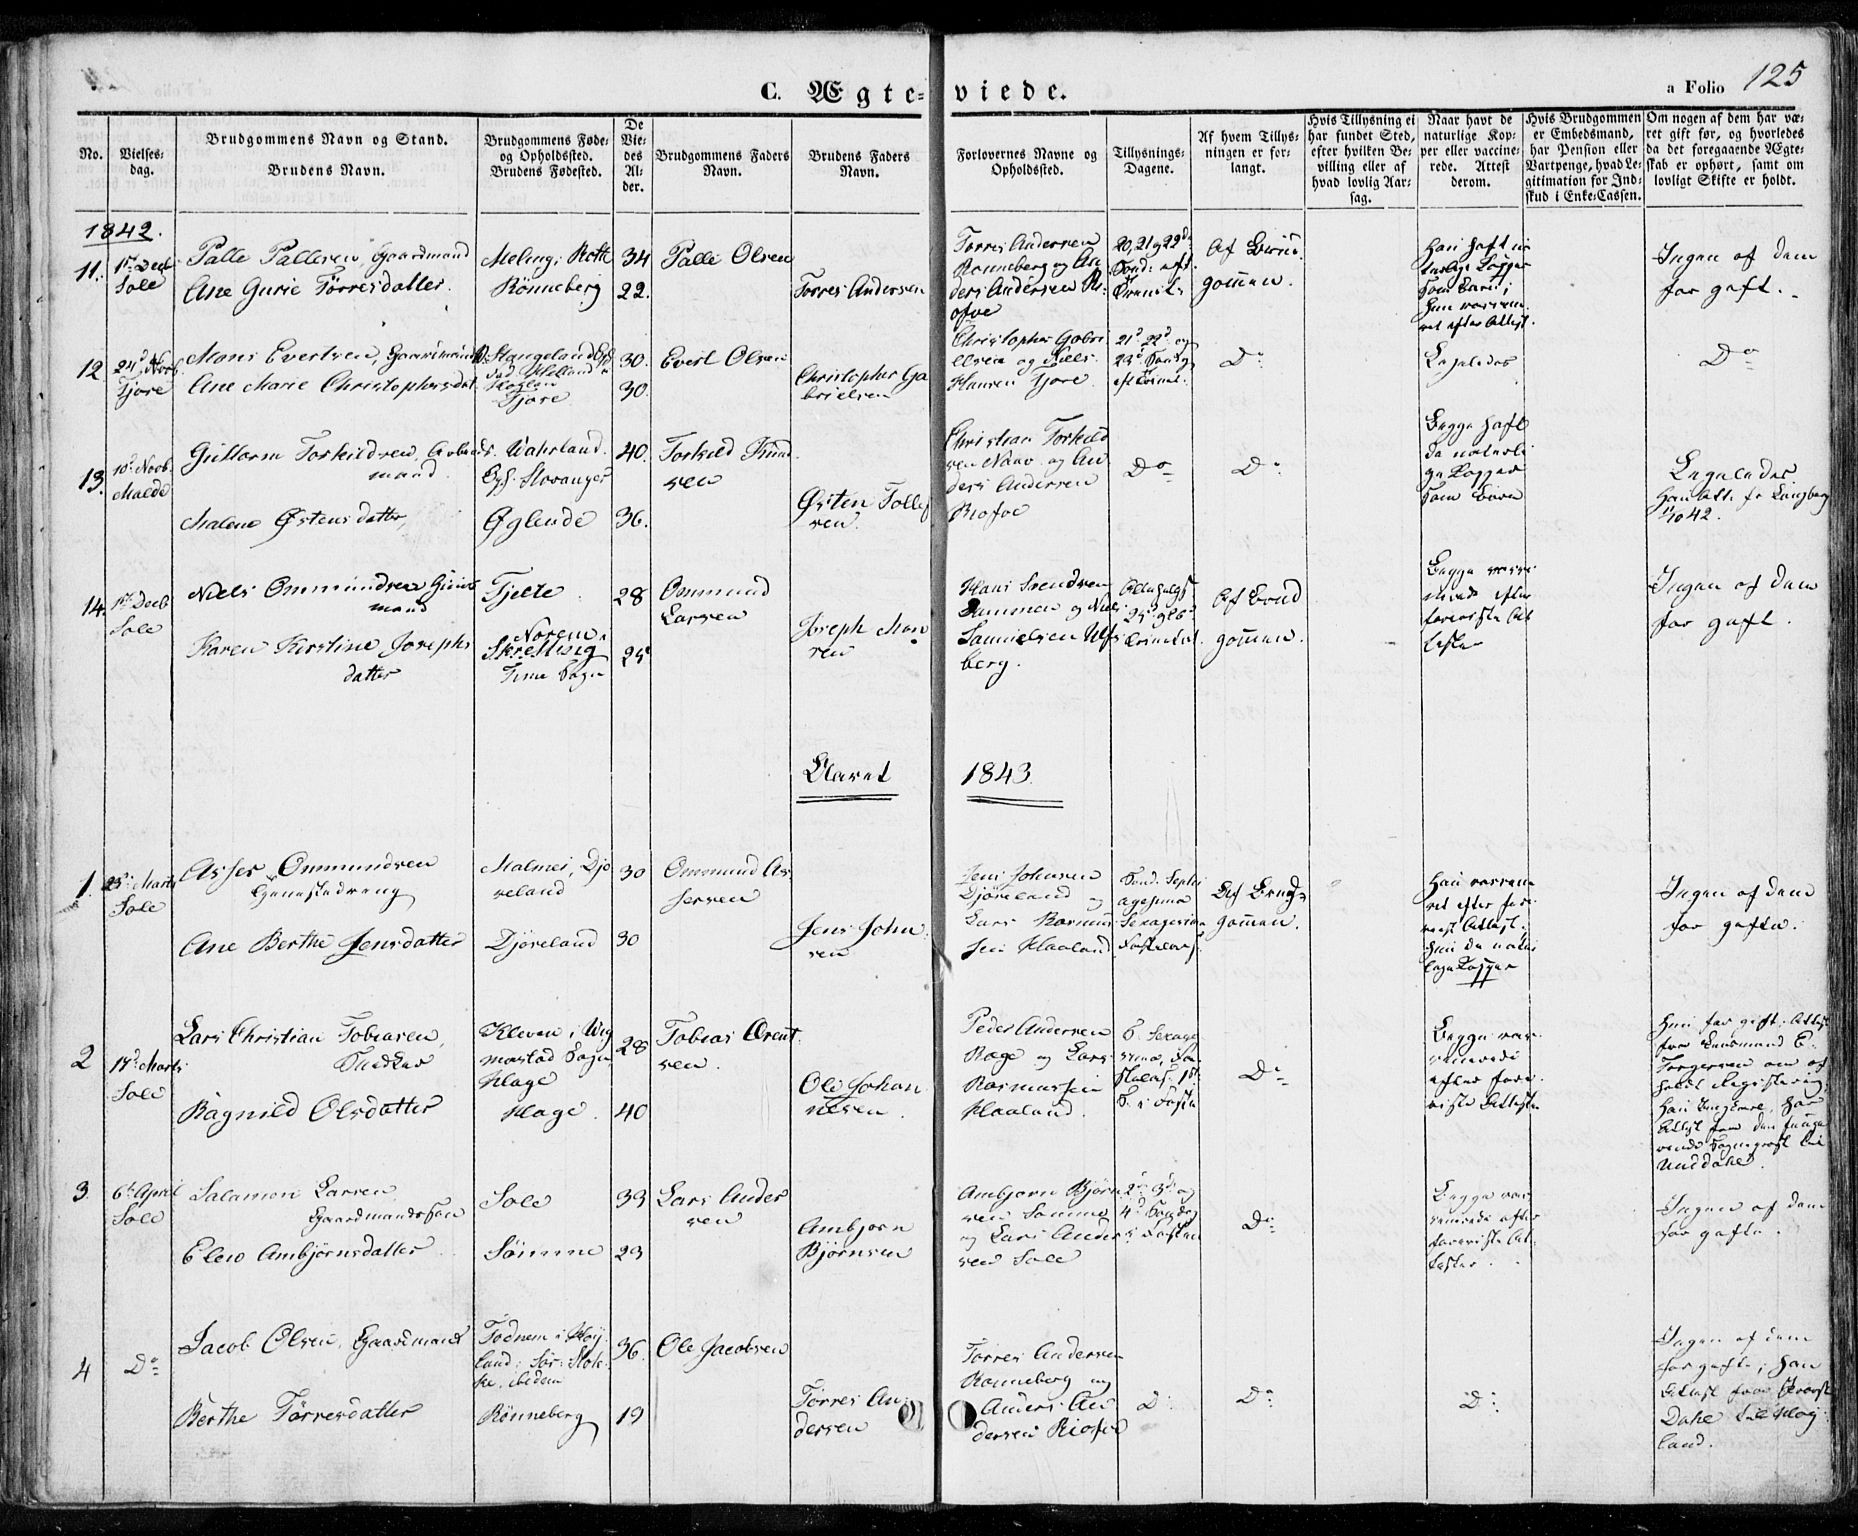 125
a Folio
C. Ægteviede.
No.
Vielses-
dag.
Brudgommens Navn og Stand.
Brudens Navn.
Brudgommens Føde-
og Opholdssted.
Brudens Fødested.
De
Vie-
des
Al-
der.
Brudgommens Faders
Navn.
Brudens Faders
Navn.
Forlovernes Navne og
Opholdssted.
Tillysnings-
Dagene.
Af hvem Tillys-
ningen er for-
langt.
Hvis Tillysning ei
har fundet Sted,
efter hvilken Be-
villing eller af
hvad lovlig Aar-
sag.
Naar havt de
naturlige Kop-
per eller vaccine-
rede. Attest
derom.
Hvis Brudgommen
er Embedsmand,
har Pension eller
Vartpenge, hvad Le-
gitimation for Ind-
skud i Enke-Cassen.
Om nogen af dem har væ-
ret gift før, og hvorledes
da det foregaaende Ægte-
skab er ophørt, samt om
lovligt Skifte er holdt.
1842.
11.
1st Decb
Sole
Palle Pallesen, Gaardmand
Ane Gurie Torresdatter.
Meling, Rotte
Rönneberg
34
22.
Palle Olsen
Torres Andersen
Torres Andersen
Ronneberg og An
ders Andersen Ri
ofve
20, 21 og 22d
Sond: eft.
Trinit.
Af Brud
gommen.
Han haft na
turlige Kopper
som Barn;
Hun vaccine
ret efter Attest.
Ingen af dem
før gift.
12
24d Novb.
Tjore
Mons Evertsen, Gaardmand
Ane Marie Christophersdat
Stangeland
Tjore
30.
30.
Evert Olsen
Christopher Ga
brielsen
Christopher Gabri
elsen og Niels
Hansen Tjore
21d 22d og
23d Sondag
eft Trinit.
Do
Ligeledes
Do
13.
10d Novb.
Malde
Guttorm Torkildsen, Arbeids
mand.
Malene Østensdatter,
Wahrland.
Stavanger
Øglende
40.
36.
Torkild Knud
sen
Østen Tollef
sen.
Christian Torkild
sen Narv. og An
ders Andersen
Riofve
Do
Do
Begge haft
de naturli
ge Kopper
som Børn
Ligeledes
42.
14.
1st Decb
Sole
Niels Ommundsen Gaard
mand
Karen Kirstine Josephs
datter
Tjelte
Norem,
Skretting
Time Sogn
28
25
Ommund
Larsen
Joseph Mon
sen
Hans Svendsen
Sammen og Niels
Samuelsen Ulfs
berg.
Trinitat.
Af Brud
gommen.
Begge vacci
nerede efter
foreviste At
tester
Ingen af dem
før gift.
Aaret 1843.
1.
23d Marts
Sole
Asser Ommundsen
Tjenestedreng
Ane Berthe Jensdatter
Malmei, Djo
reland
Djøreland
30
30
Ommund As
sersen
Jens John
sen
Jens Johnsen
Djøreland og
Lars Rasmus
sen Haaland
Sond. Septu
agesima
Sexagesima
Fastelavn.
Af Brud
gommen.
Han vaccine
ret efter fore
vist Attest.
Hun de natur
lige Kopper
Ingen af dem
før gifte.
2
17d Marts
Sole
Lars Christian Tobiasen,
Snedker
Ragnild Olsdatter
Kleven i Wig
mostad Sogn,
Hage
Hage.
28
40
Tobias Orent
sen.
Ole Johan
nesen
Peder Andersen
Rage og Lars
Rasmussen
Haaland.
S. Sexage
sima, Fa
stelavn. 1st
S. i Faste
Do
Begge vac
cinerede
efter fore
viste Attester
Hun før gift, Attest
fra Lensmand E.
Torgersen om af
holdt Registering,
Han Ungkarl, har
Attest fra den funge
rende Sognepræst til
Unddahl.
3
6t April
Sole
Salamon Larsen
Gaardmandssøn
Elen Ambjørnsdatter
Sole
Sömme
33
23
Lars Ander
sen
Ambjørn
Bjørnsen
Ambjørn Bjørn
sen Sømme
og Lars Ander
sen Sole
2d 3d og
4d Søndag
i Fasten
Do
Begge vac
cinerede efter
foreviste At
tester.
Ingen af dem
før gifte.
4
Do
Jacob Olsen, Gaardmand
Berthe Törresdatter
Fodnem i Høy
land: Sör: Stok
ke, ibidem
Rönneberg
36.
19
Ole Jacobsen
Törres An
dersen
Torres Andersen
Ronneberg og
Anders An
dersen Riofve
Do
Do
Do
Ingen af dem
før gifte; han
Attest fra Provst
Dahl til Høy
land.